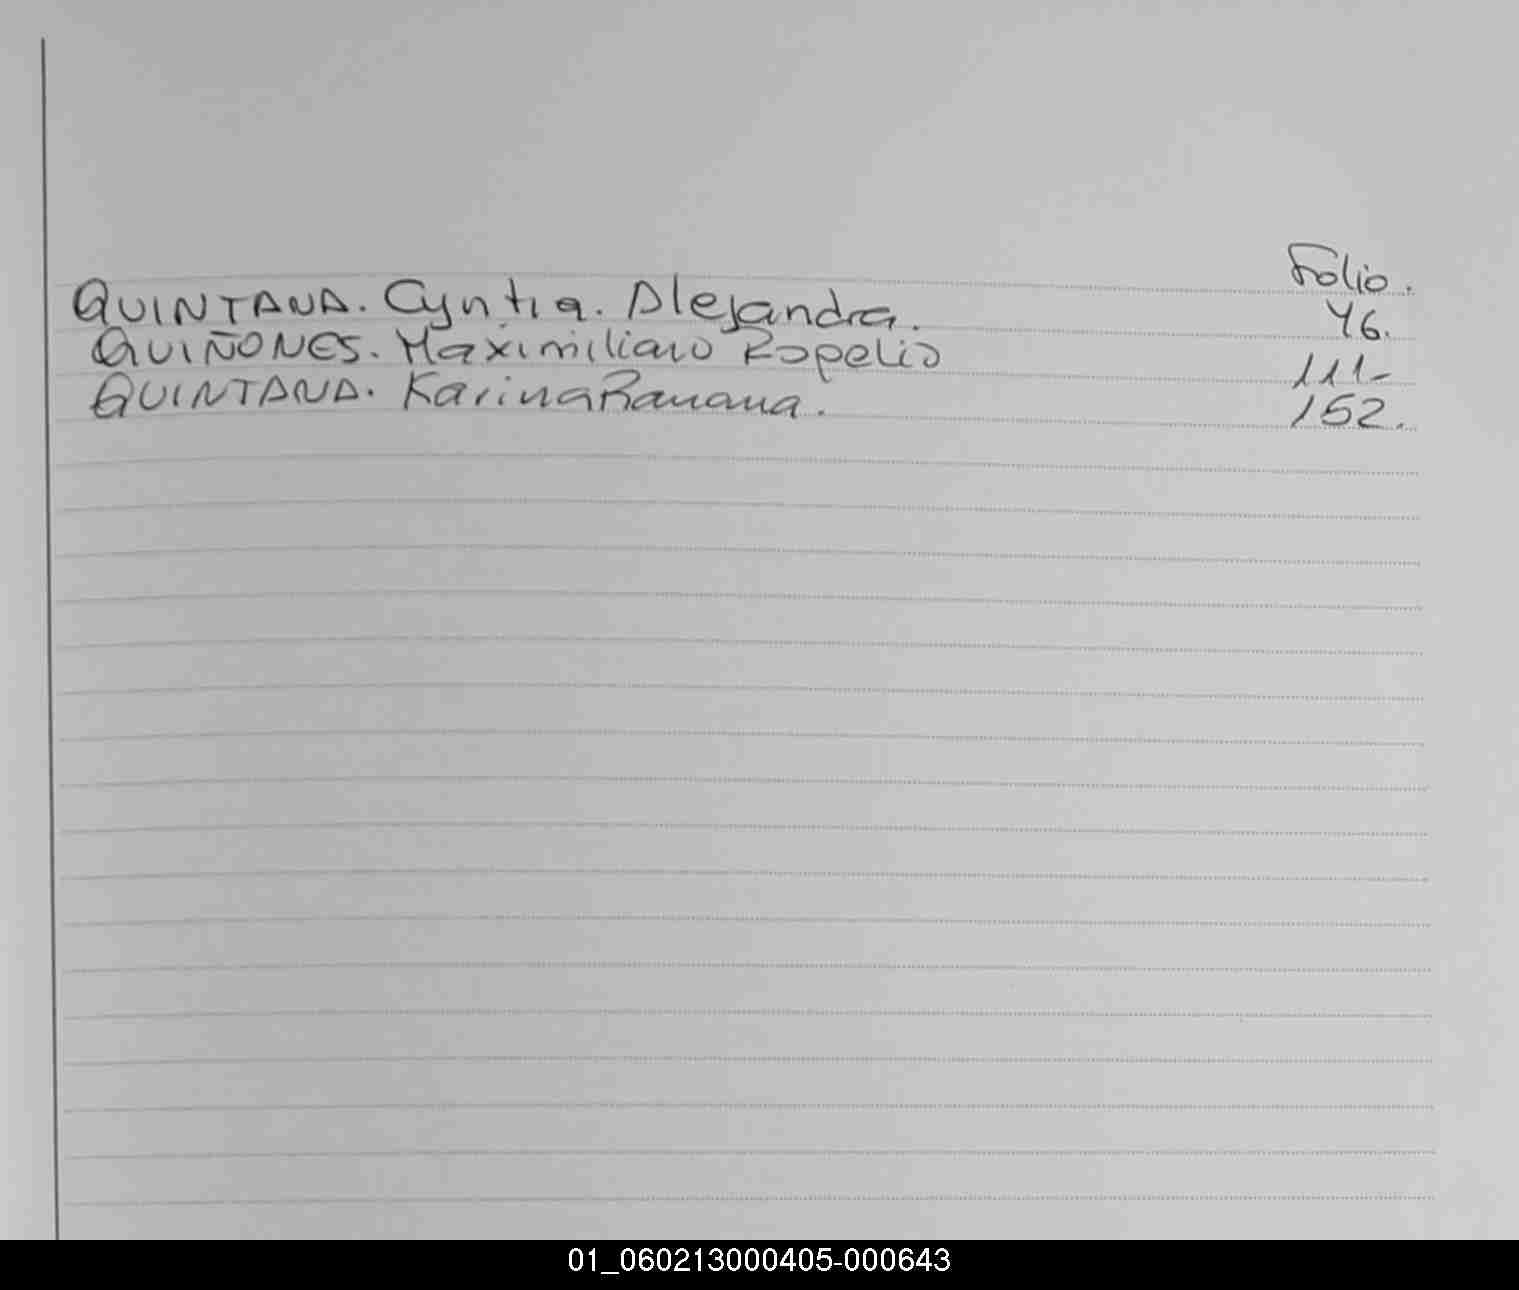 Folio.
QUINTANA. Cyntia. Alejandra. 46.
QUIÑONES. Maximiliano Rogelio 111-
QUINTANA. Karina Ramona. 152.
01_060213000405-000643